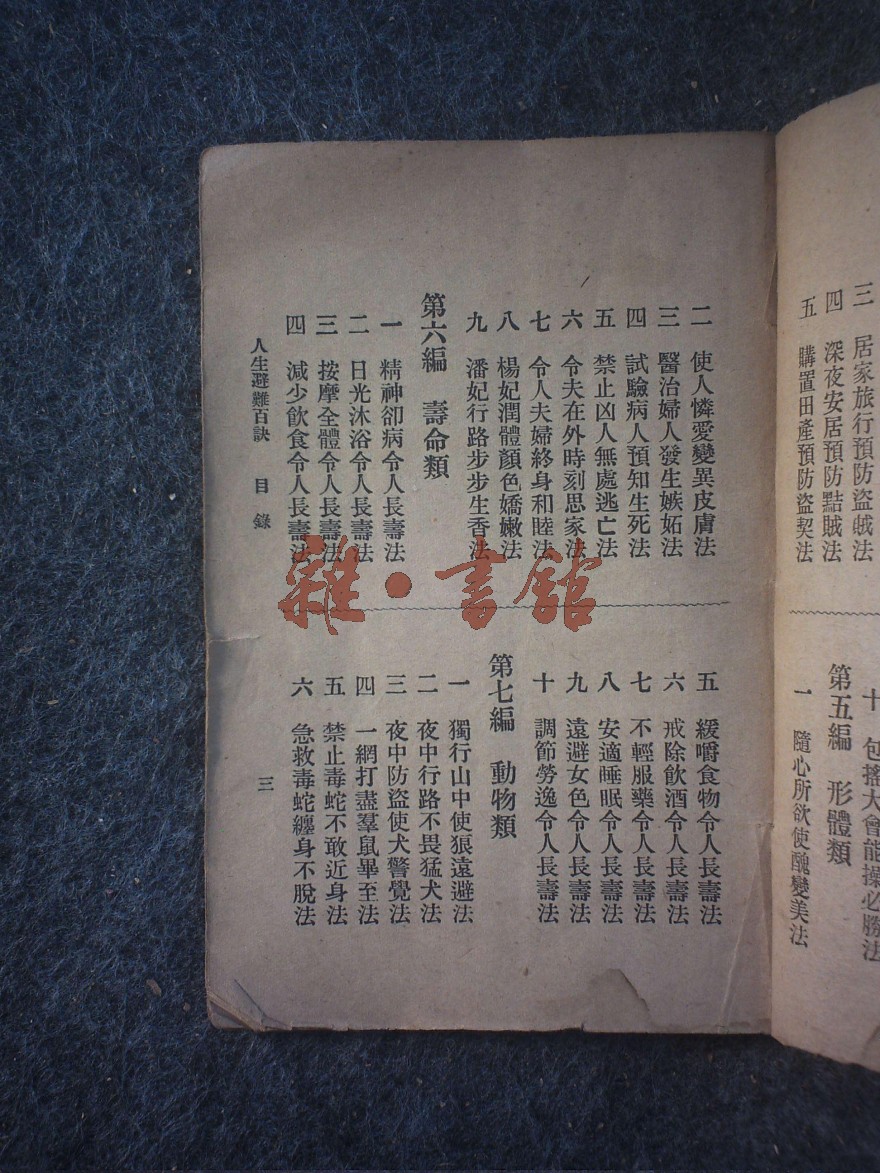 三　居家旅行預防盜賊法
四　深夜安居預防黠賊法
五　購置田產預防盜契法
十　包搖大會能操必勝法
第五編　形體類
一　隨心所欲使醜變美法
二　使人憐愛變異皮膚法
三　醫治婦人發生嫉妬法
四　試驗病人預知生死法
五　禁止凶人無處逃亡法
六　令夫在外時刻思家法
七　令人夫婦終身和睦法
八　楊妃潤體顏色嬌嫩法
九　潘妃行路步步生香法
第六編　壽命類
一　精神卻病令人長壽法
二　日光沐浴令人長壽法
三　按摩全體令人長壽法
四　減少飲食令人長壽法
五　緩嚼食物令人長壽法
六　戒除飲酒令人長壽法
七　不輕服藥令人長壽法
八　安適睡眠令人長壽法
九　遠避女色令人長壽法
十　調節勞逸令人長壽法
第七編　動物類
一　獨行山中使狼遠避法
二　夜中行路不畏猛犬法
三　夜中防盜使犬警覺法
四　一網打盡羣鼠畢至法
五　禁止毒蛇不敢近身法
六　急救毒蛇纏身不脫法
人生避難百訣　目錄
三
雜·書館